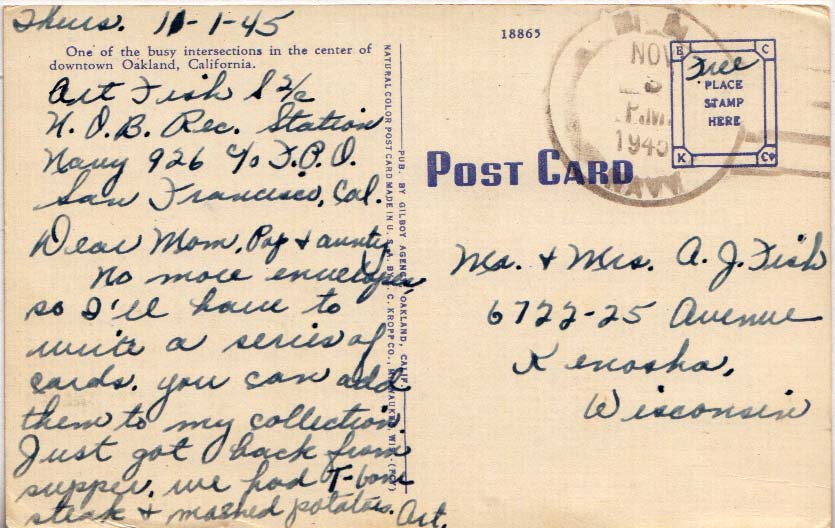 Thurs. 11-1-45
One of the busy intersections in the center of
downtown Oakland, California.
Art Fish S 2/c
N. O. B. Rec. Station
Navy 926 c/o F.P.O.
San Francisco, Cal.
Dear Mom, Pop & aunty,
No more envelopes,
so I'll have to
write a series of
cards. you can add
them to my collection.
Just got back from
supper. we had T-bone
steak & mashed potatoes. Art.
NATURAL COLOR POST CARD MADE IN U. S. A. BY E. C. KROPP CO., MILWAUKEE, WIS.
PUB. BY GILBOY AGENCY, OAKLAND, CALIF.
18865
POST CARD
NOV
P.M.
1945
NAVY
E C
Free
PLACE
STAMP
HERE
K Co
Mr. & Mrs. A. J. Fish
6722-25 Avenue
Kenosha,
Wisconsin